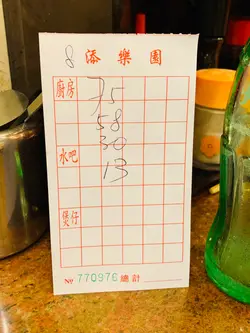 8 添樂園
廚房 75
58
30
水吧 13
煲仔
No 770976 總計